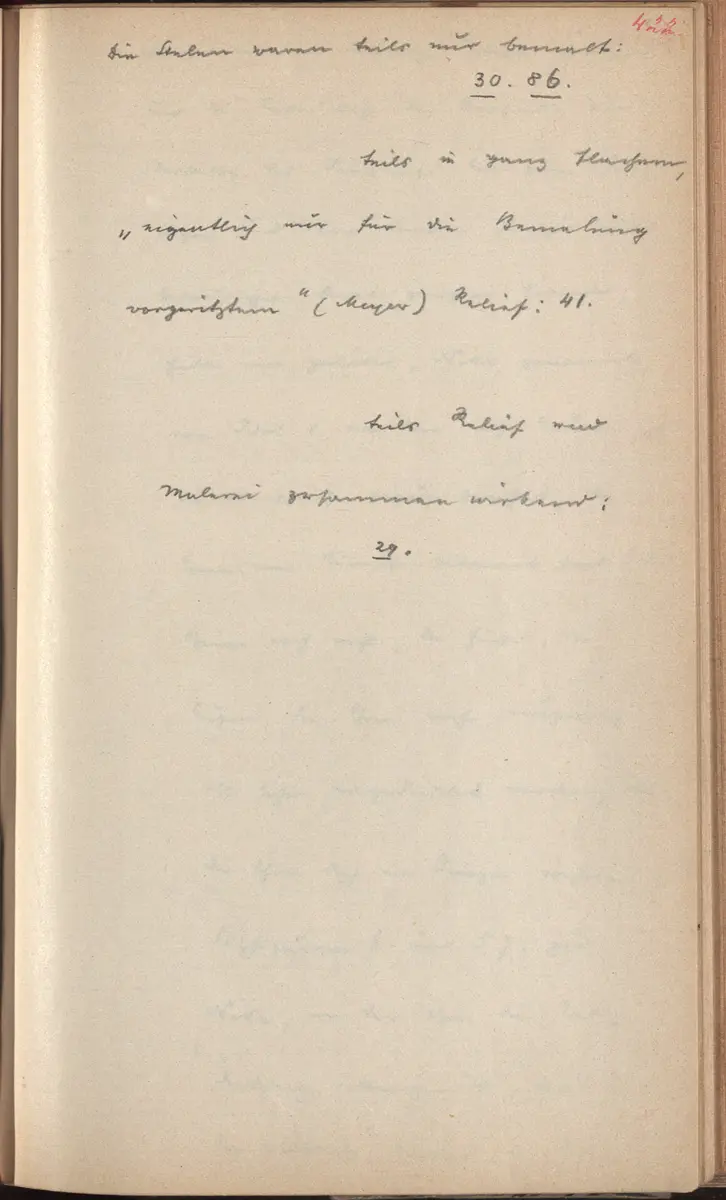 Die Stelen waren teils nur bemalt:
30. 86.
teils in ganz flachem,
„eigentlich nur für die Bemalung
vorgeritztem" (Meyer) Relief: 41.
teils Relief und
Malerei zusammen wirkend:
29.